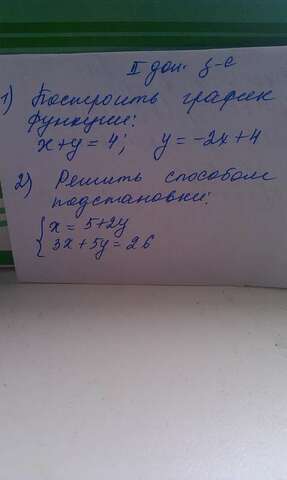 II доп. з-е
1) Построить график
функции:
x+y=4; y=-2x+4
2) Решить способом
подстановки:
{x=5+2y
3x+5y=26